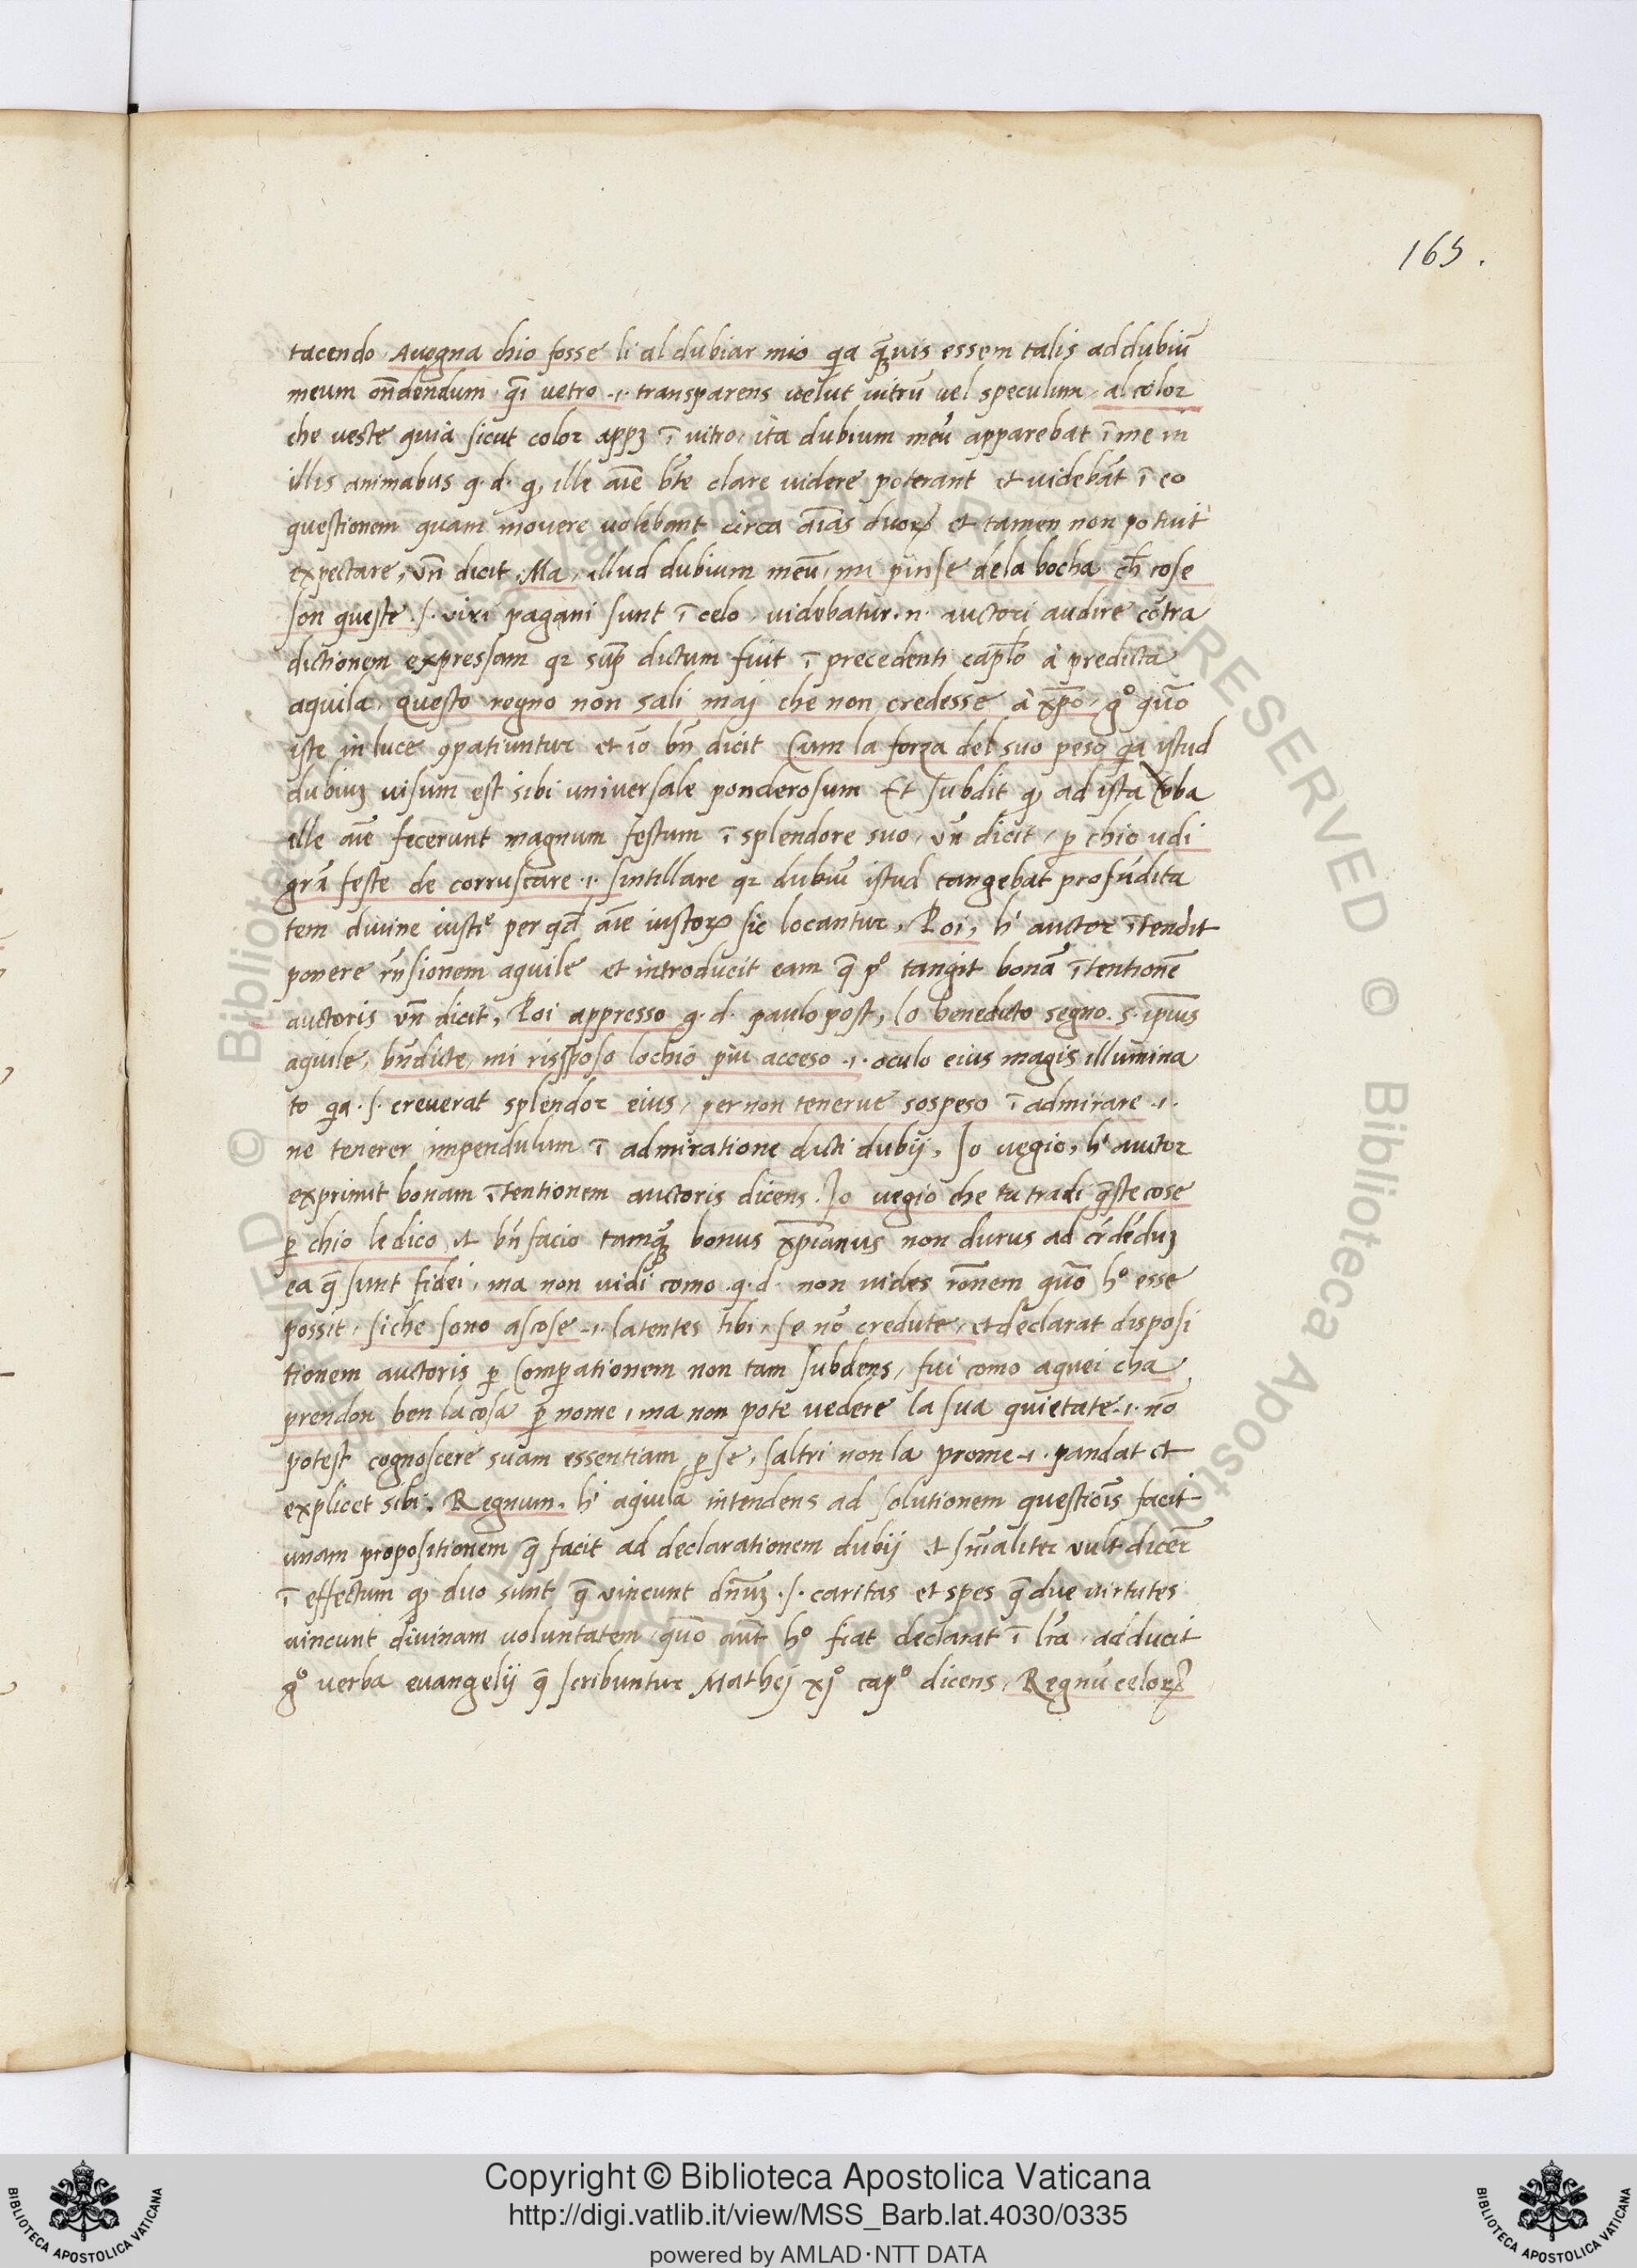 165.
tacendo, Avegna chio fosse li al dubiar mio qa q̃uis essem talis ad dubiũ
meum oñdendum, q̃i vetro .i. transparens velut vitrũ vel speculum, al color
che veste quià sicut color appꝫ ĩ vitro, ita dubium meũ apparebat ĩ me in
illis animabus q. d. ꝙ ille aĩe bt̃e clare videre poterant et videbãt ĩ eo
questionem quam movere volebant circa aĩas duoꝝ et tamen non potuit
expectare, vñ dicit, Ma, illud dubium meũ, mi pinse dela bocha ch̃ cose
son queste .s. viri pagani sunt ĩ celo, videbatur .n. auctori audire cõtra
dictionem expressam qꝛ sup̃ dictum fuit ĩ precedenti cap̃lo à predicta
aquila, questo regno non sali maj che non credesse à x̃po, g° quõ
iste in luce ꝯpatiuntur et iõ bñ dicit Cum la forza del suo peso qa istud
dubiuꝫ visum est sibi universale ponderosum Et subdit ꝙ ad ista vba
ille aĩe fecerunt magnum festum ĩ splendore suo, vñ dicit, ꝑ chio vdi
grã feste de corruscare .i. sintillare qꝛ dubiũ istud tangebat profũdita
tem divine iustiᵉ per qd̃ aĩe iustoꝝ sic locantur, Poi, hⁱ auctor ĩtendit
ponere rñsionem aquile et introducit eam q̃ p° tangit bonã ĩtentionẽ
auctoris vñ dicit, Poi appresso q. d. paulo post, lo benedicto segno .s. ip̃ius
aquile, bñdicte, mi rispose lochio più acceso .i. oculo eius magis illumina
to qa .s. creverat splendor eius, per non tenerve sospeso ĩ admirare .i.
ne tenerer impendulum ĩ admiratione dicti dubij, Io vegio, hⁱ auctor
exprimit bonam ĩtentionem auctoris dicens, Io vegio che tu tradi q̃ste cose
ꝑ chio le dico et bñ facio tamq̃ꝫ bonus x̃pianus non durus ad cr̃dẽduꝫ
ea q̃ sunt fidei, ma non vidi como q. d. non vides rõnem quõ h° esse
possit, si che sono ascose .i. latentes tibi, se nõ credute, et declarat disposi
tionem auctoris ꝑ Comꝑationem non tam subdens, fui como aquei cha
prendon ben la cosa ꝑ nome, ma non pote vedere la sua quietate .i. nõ
potest cognoscere suam essentiam ꝑ se, saltri non la prome .i. pandat et
explicet sibi. Regnum. hⁱ aquila intendens ad solutionem questiõis facit
unam propositionem q̃ facit ad declarationem dubij et sñialiter vult dicer̃
ĩ effectum ꝙ duo sunt q̃ vincunt dñuꝫ .s. caritas et spes q̃ due virtutes
vincunt divinam voluntatem, quõ aũt h° fiat declarat ĩ lr̃a, adducit
g° verba evangelij q̃ scribuntur Mathej xj° cap° dicens, Regnũ celoꝝ
Copyright © Biblioteca Apostolica Vaticana
http://digi.vatlib.it/view/MSS_Barb.lat.4030/0335
powered by AMLAD·NTT DATA
BIBLIOTECA APOSTOLICA VATICANA
BIBLIOTECA APOSTOLICA VATICANA